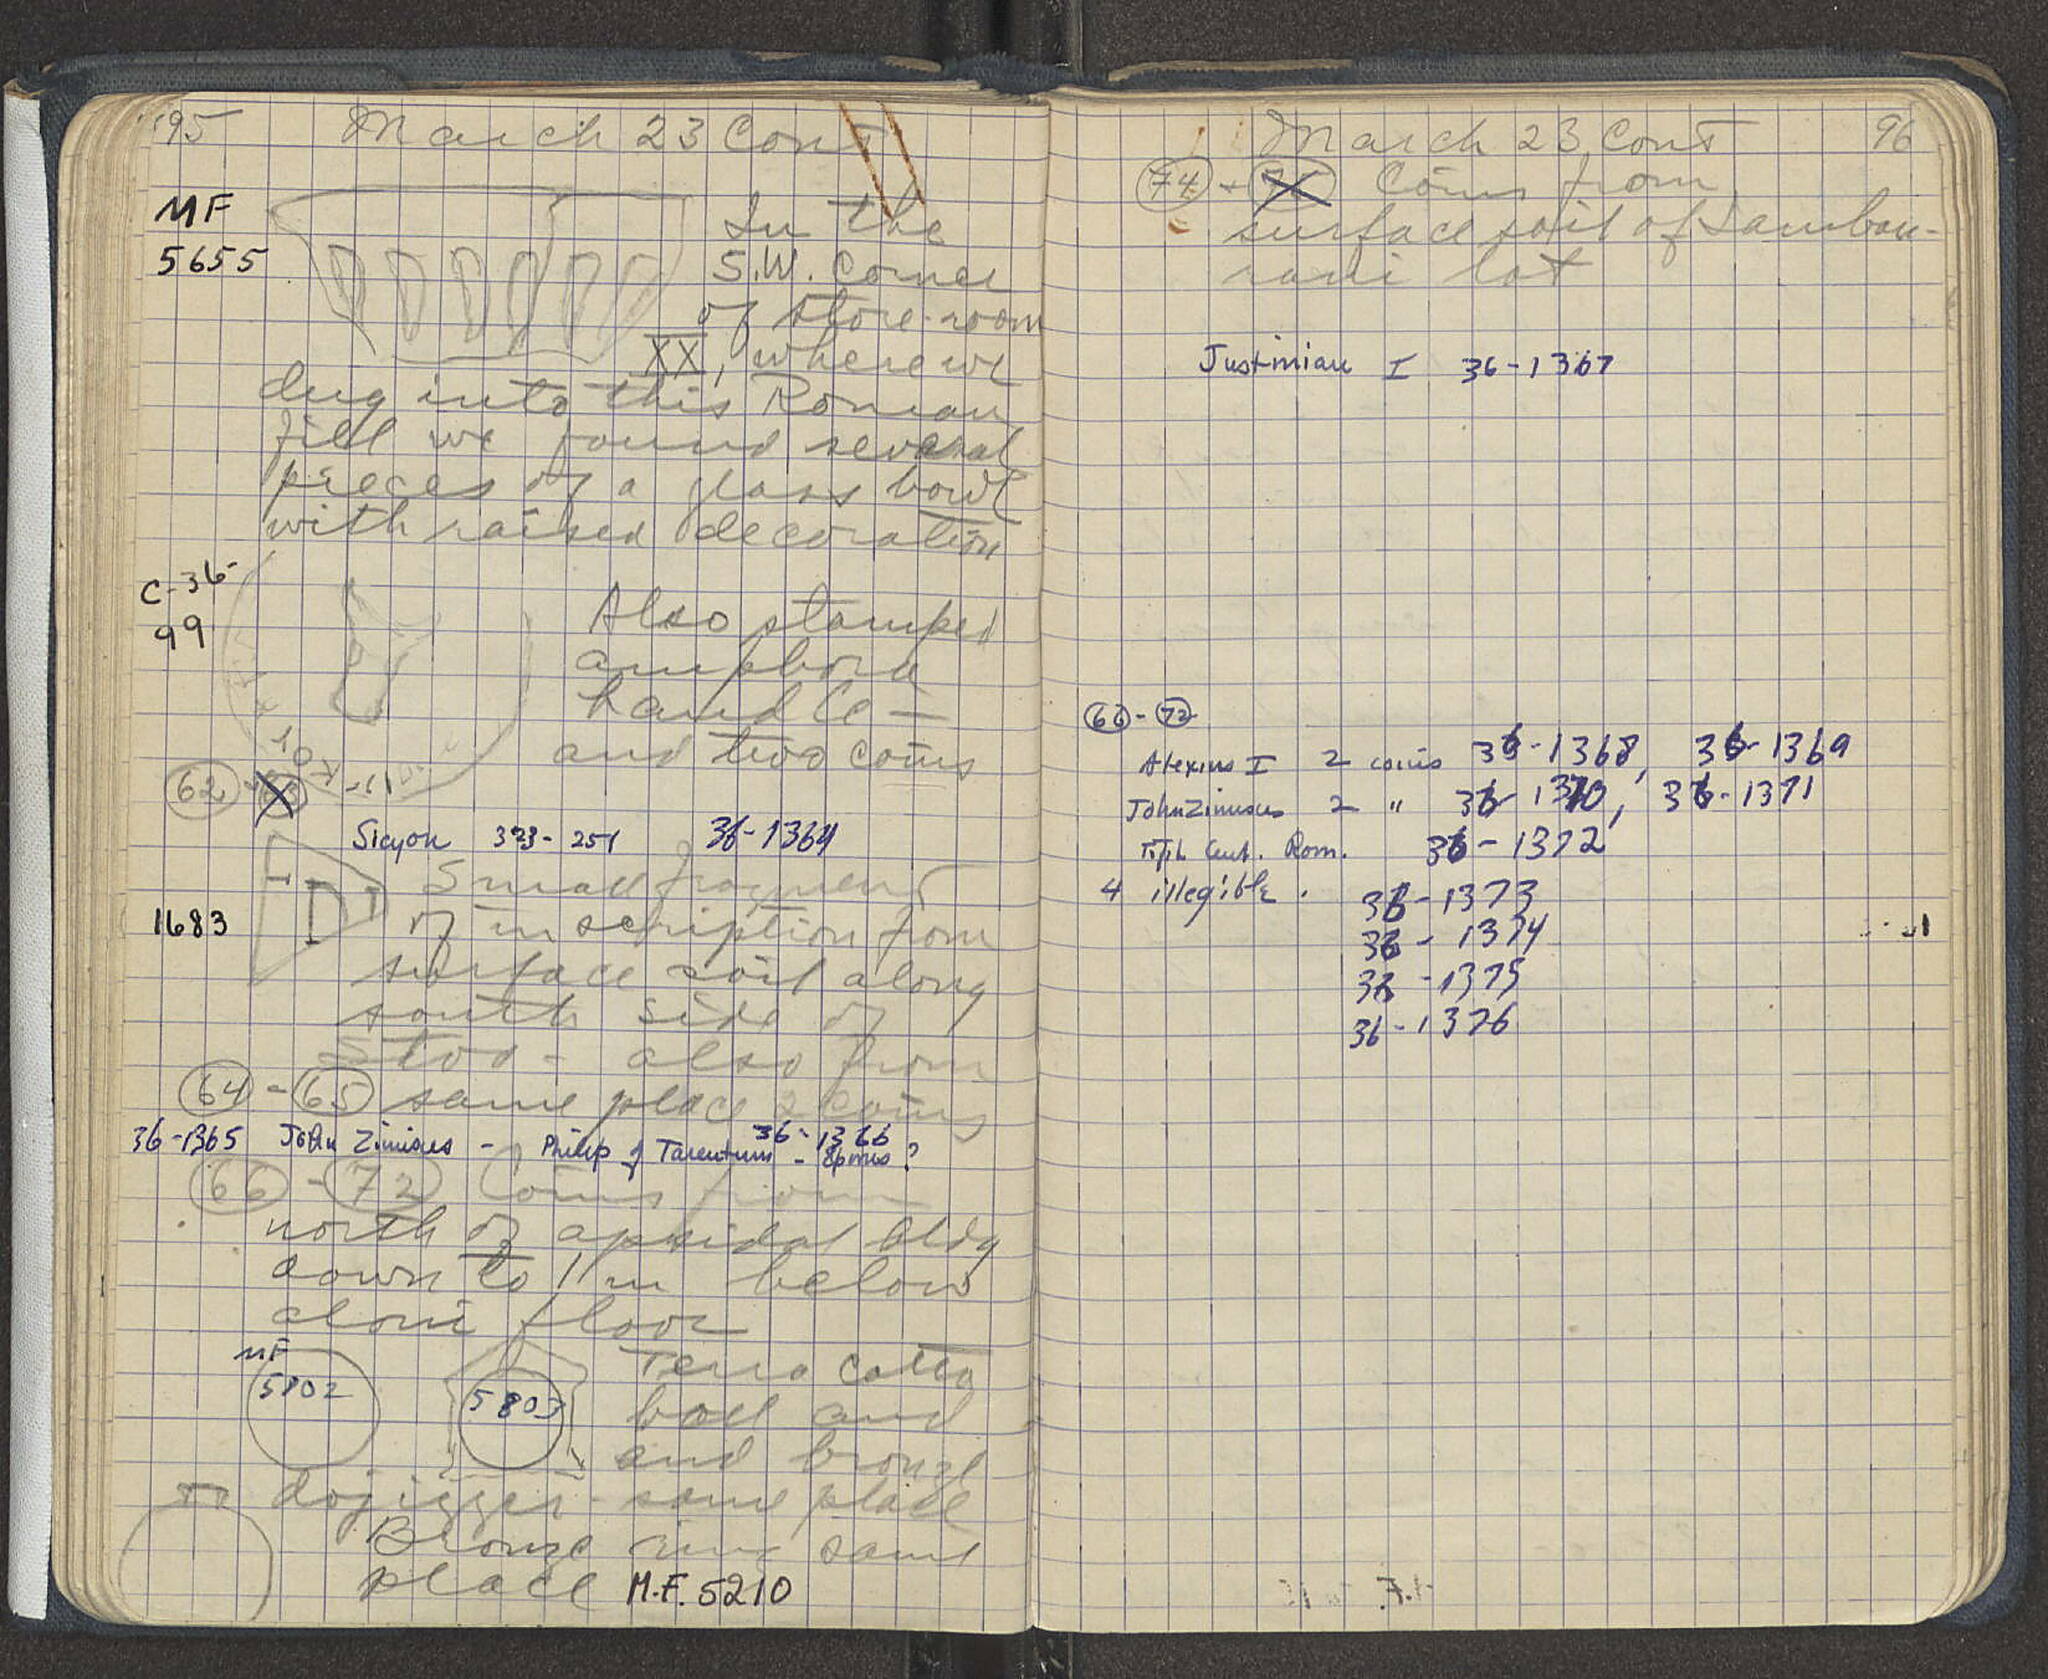 95 March 23 Cont
MF
5655
In the
S.W. Corner
of store-room
XX, where we
dug into this Roman
fill we found several
pieces of a glass bowl
with raised decoration
C-36-
99
Also stamped
amphora
handle —
and two coins
62
Sicyon 323-251 36-1364
1683
Small fragment
of inscription from
surface soil along
south side of
Stoa - also from
64 - 65 same place 2 coins
36-1366
36-1365 John Zimisces - Philip of Tarentum - Epirus?
66 - 72 Coins from
north of apsidal bldg
down to 1 m below
floor
MF
5802
5803
Terra cotta
ball and
and bronze
dojigger - same place
Bronze ring same
place M.F. 5210
March 23 Cont 96
74 + Coins from
surface soil of Lambou-
lot
Justinian I 36-1367
66 - 72
Alexius I 2 coins 36-1368, 36-1369
John Zimisces 2 " 36-1370, 36-1371
Fifth Cent. Rom. 36-1372
4 illegible. 36-1373
36-1374
36-1375
36-1376